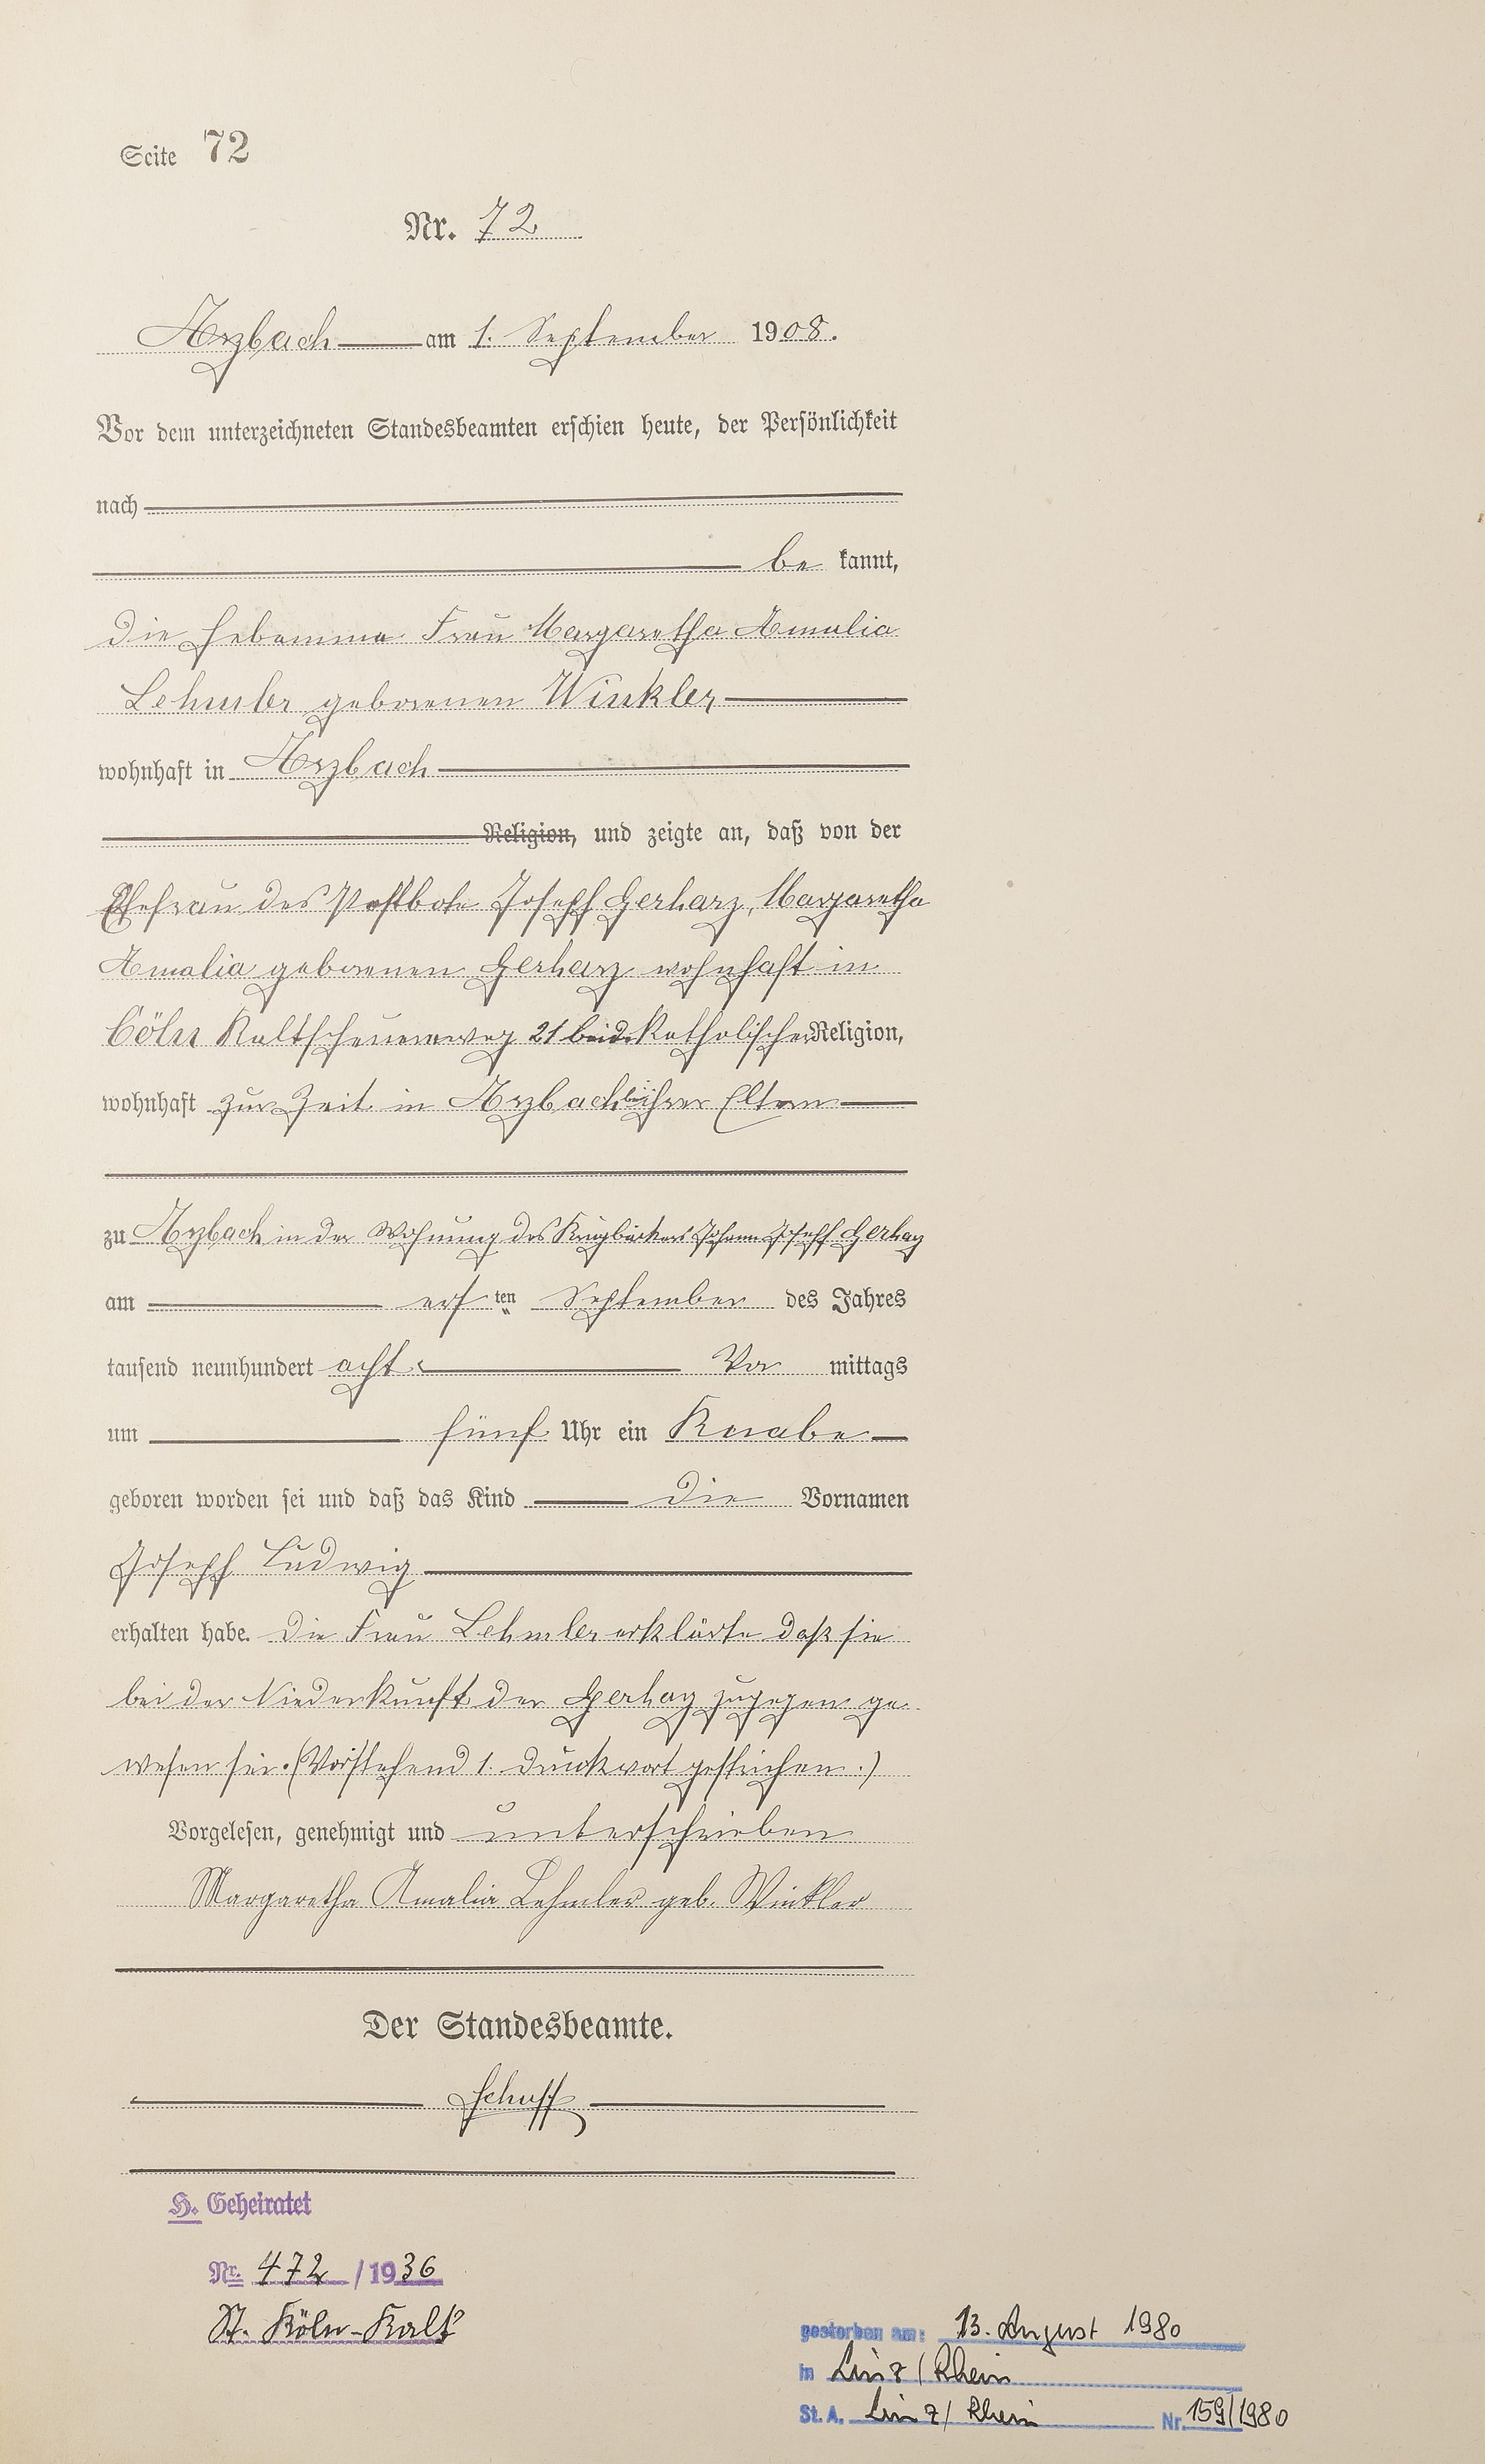 Seite 72
Nr. 72
Arzbach am 1. September 1908.
Vor dem unterzeichneten Standesbeamten erschien heute, der Persönlichkeit
nach
be kannt,
die Hebamme Frau Margaretha Amalia
Lehmler geborenen Winkler
wohnhaft in Arzbach
Religion, und zeigte an, daß von der
Ehefrau des Postbote Joseph Gerharz, Margaretha
Amalia geborenen Gerharz wohnhaft in
Cöln Kaltscheuerweg 21 beide Katholischer Religion,
wohnhaft zur Zeit in Arzbach bei ihrer Eltern
zu Arzbach in der Wohnung des Krugbäckers Johann Joseph Gerharz
am ersten September des Jahres
tausend neunhundert acht Vor mittags
um fünf Uhr ein Knabe
geboren worden sei und daß das Kind die Vornamen
Joseph Ludwig
erhalten habe. Die Frau Lehmler erklärte daß sie
bei der Niederkunft der Gerharz zugegen ge-
wesen sei. (Vorstehend 1. Druckwort gestrichen.)
Vorgelesen, genehmigt und unterschrieben
Margaretha Amalia Lehmler geb. Winkler
Der Standesbeamte.
Schupp
H. Geheiratet
Nr. 472 / 1936
St. Köln-Kalk
gestorben am: 13. August 1980
in Linz / Rhein
St. A. Linz / Rhein Nr. 159/1980